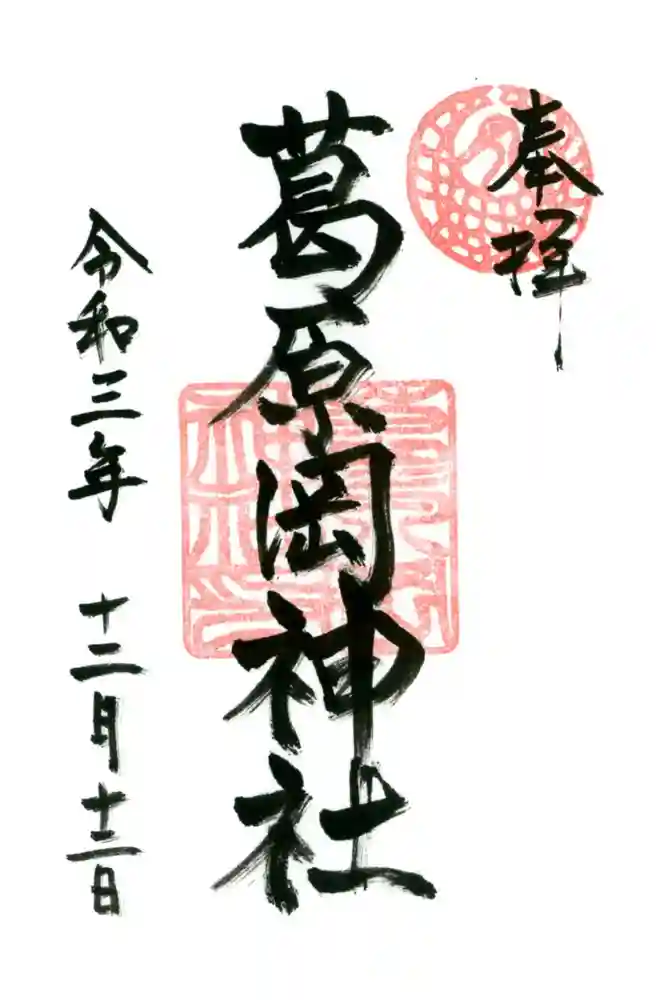 奉拝
葛原岡神社
令和三年 十二月十二日